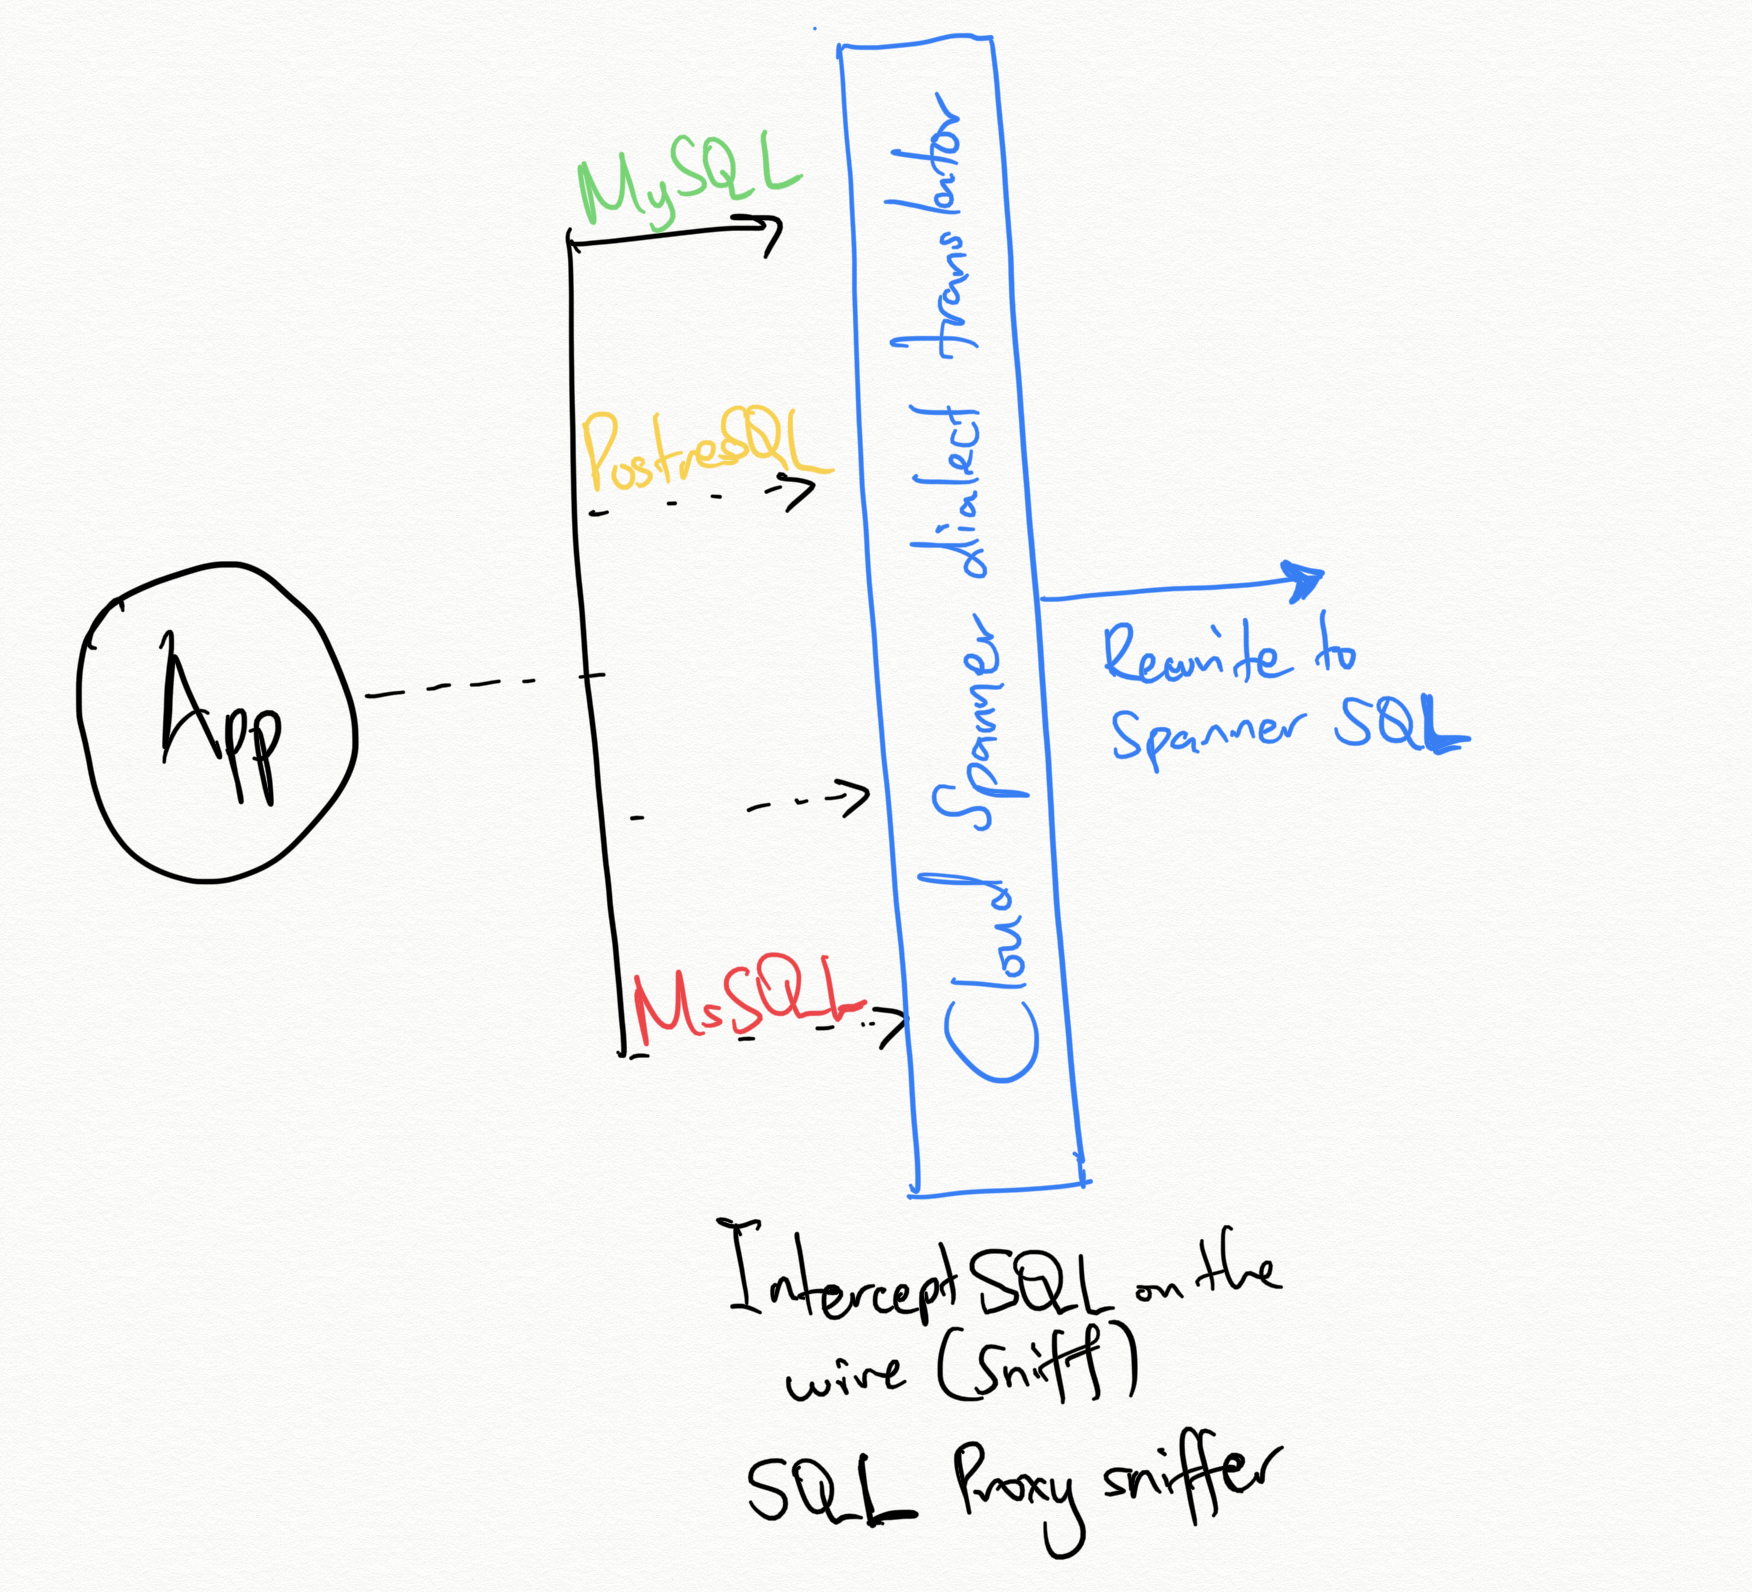 MySQL
PostresQL
App
MsSQL
Cloud Spanner dialect translator
Rewrite to
Spanner SQL
Intercept SQL on the
wire (Sniff)
SQL Proxy sniffer